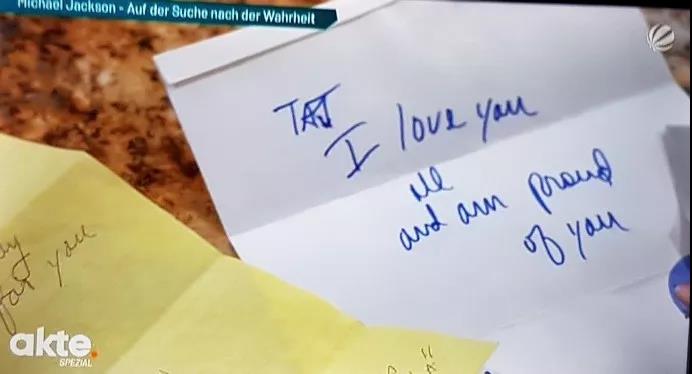 Michael Jackson - Auf der Suche nach der Wahrheit
TAJ
I love you
all
and am proud
of you
for you
akte.
SPEZIAL